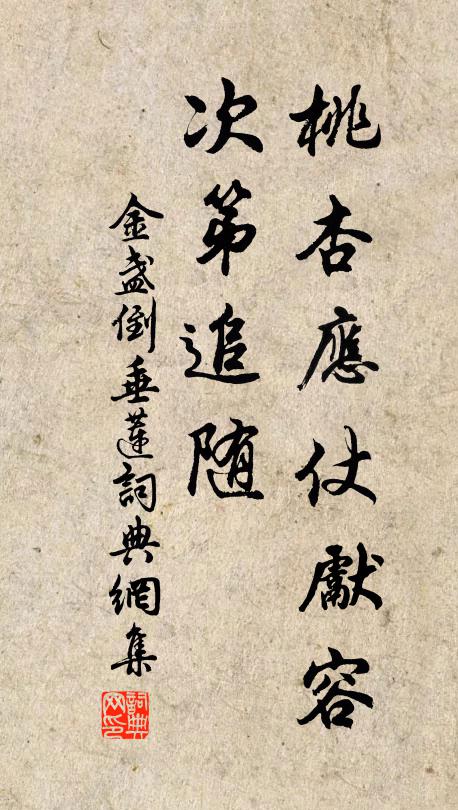 桃杏應仗獻容
次第追随
金盞倒垂蓮詞典網集
詞典网印